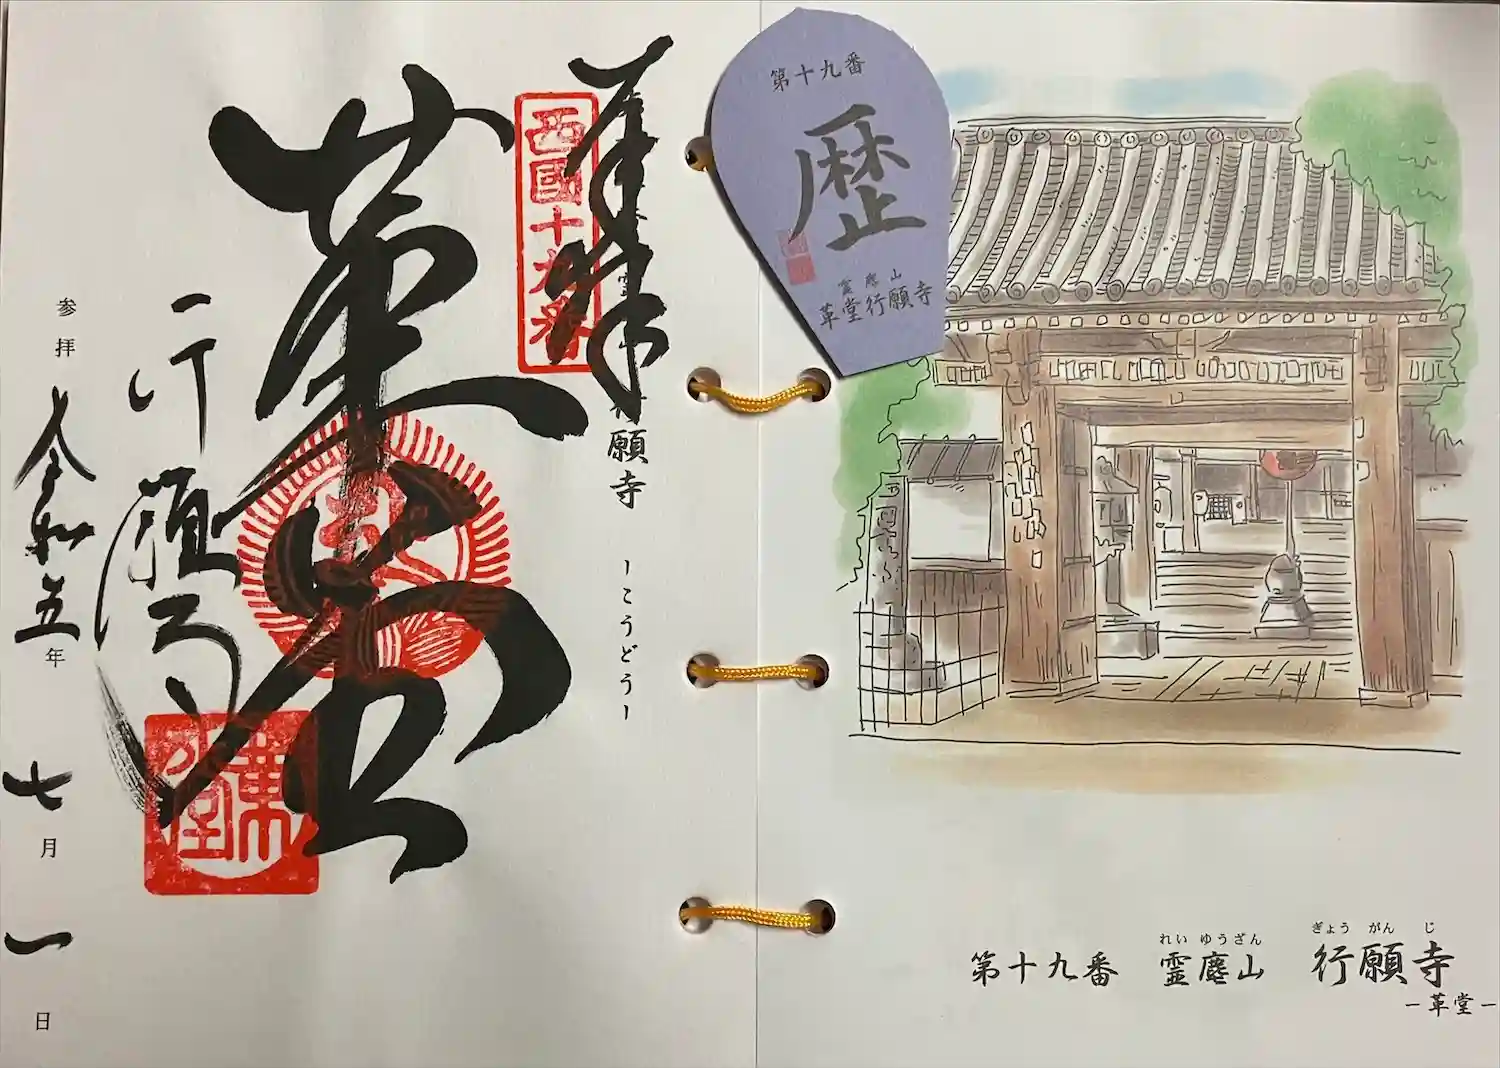 奉拝
西國十九番
願寺
ーこうどうー
革堂
行願寺
革堂
参拝
令和五年
七月
一日
第十九番
歴
霊麀山
革堂行願寺
第十九番 霊麀山 行願寺
れいゆうざん ぎょうがんじ
ー革堂ー